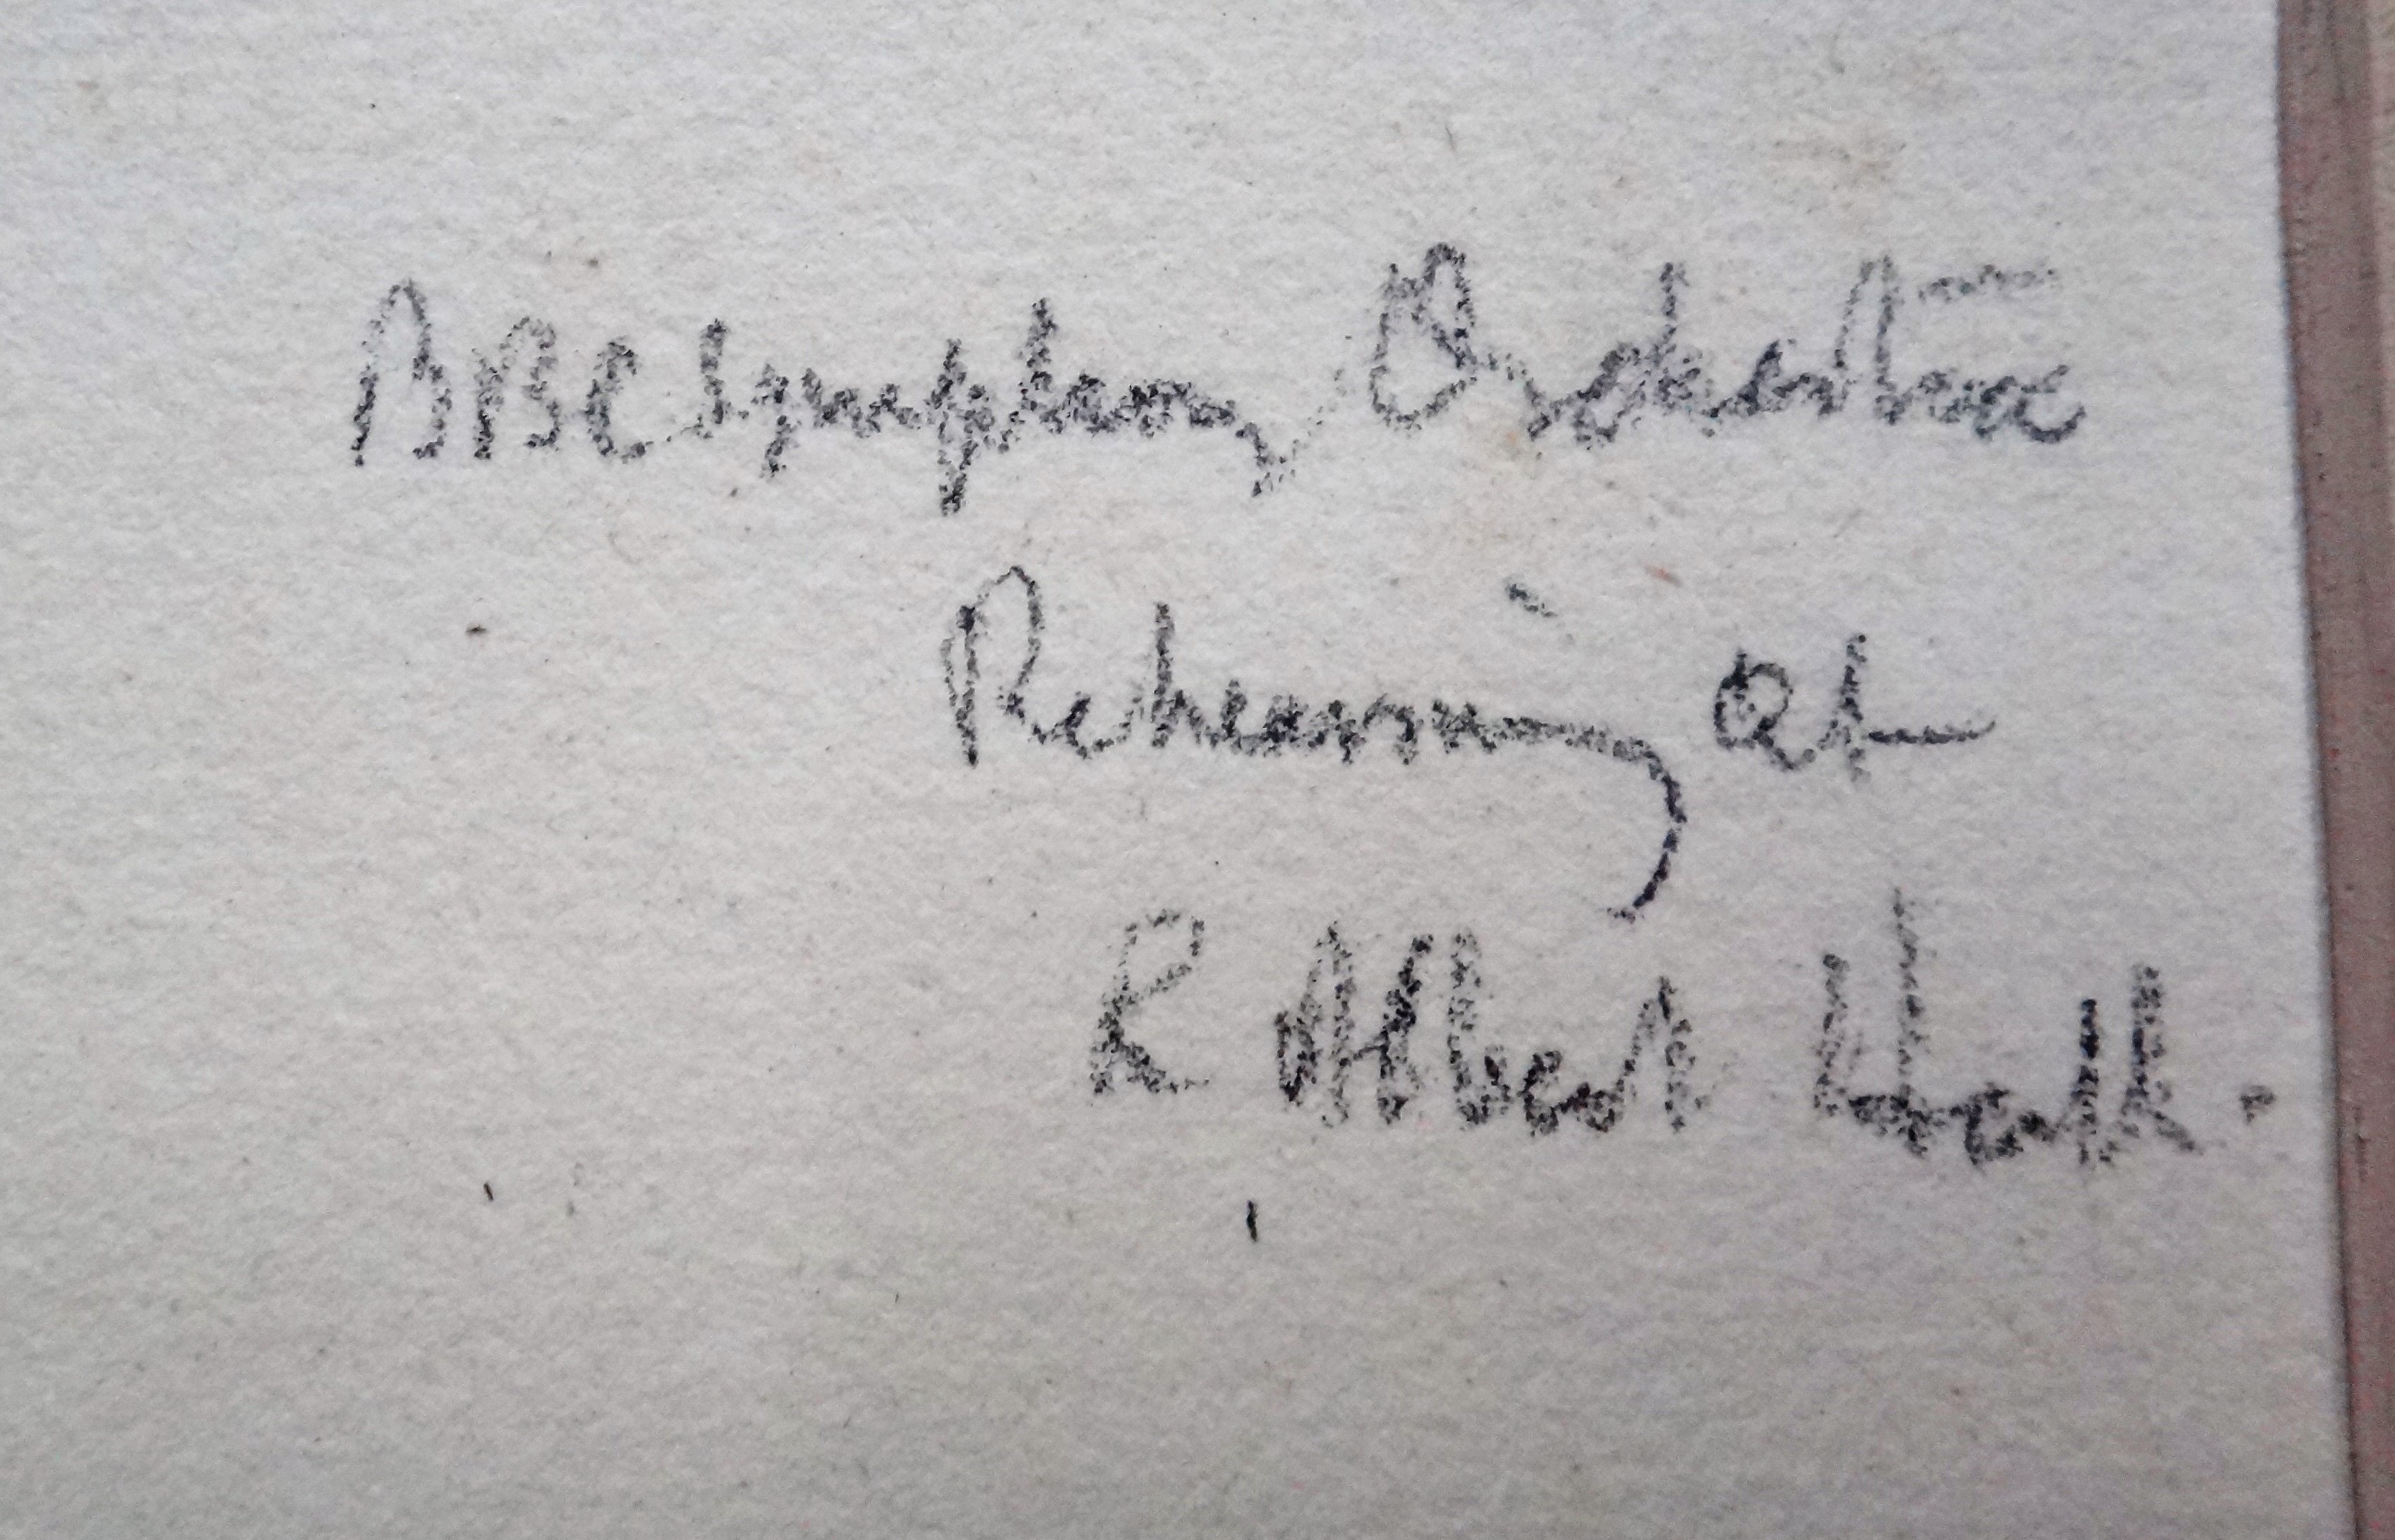 BBC Symphony Orchestra
Rehearsing at
R Albert Hall.